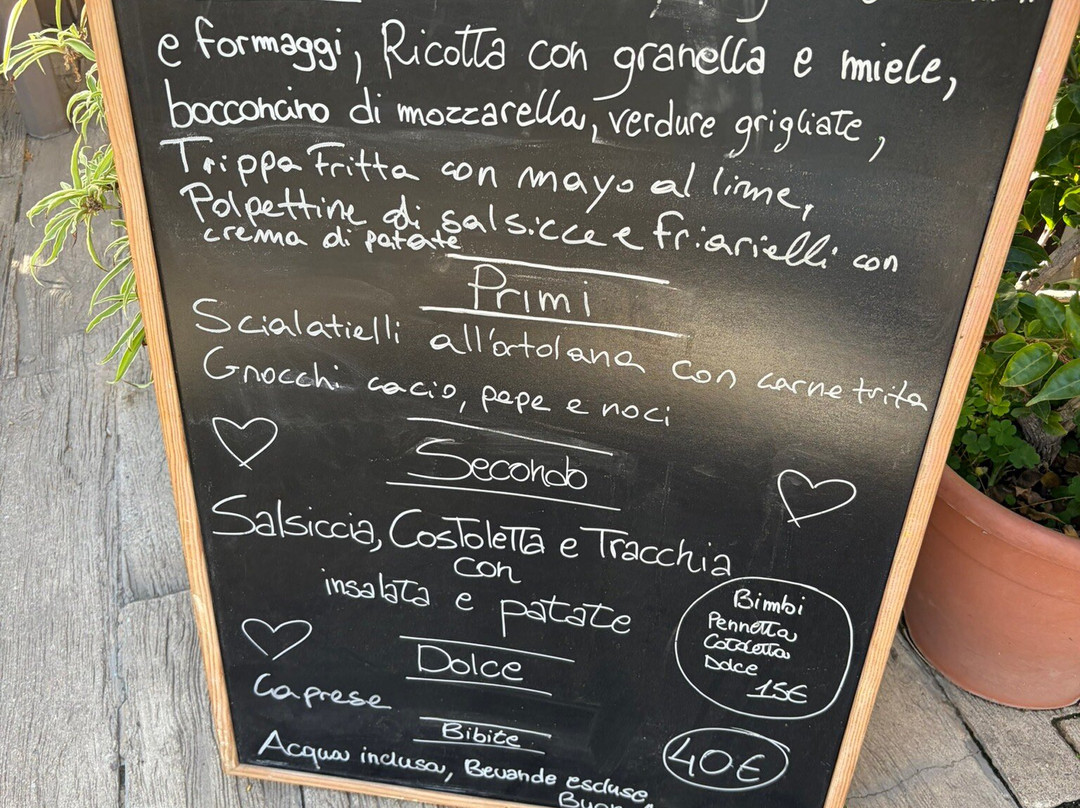 e formaggi, Ricotta con granella e miele,
bocconcino di mozzarella, verdure grigliate,
Trippa Fritta con mayo al lime,
Polpettine di salsicce e friarielli con
crema di patate
Primi
Scialatielli all'ortolana con carne trita
Gnocchi cacio, pepe e noci
Secondo
Salsiccia, Costoletta e Tracchia
con
insalata e patate
Bimbi
Pennetta
Cotoletta
Dolce
15€
Dolce
Caprese
Bibite
40€
Acqua inclusa, Bevande escluse